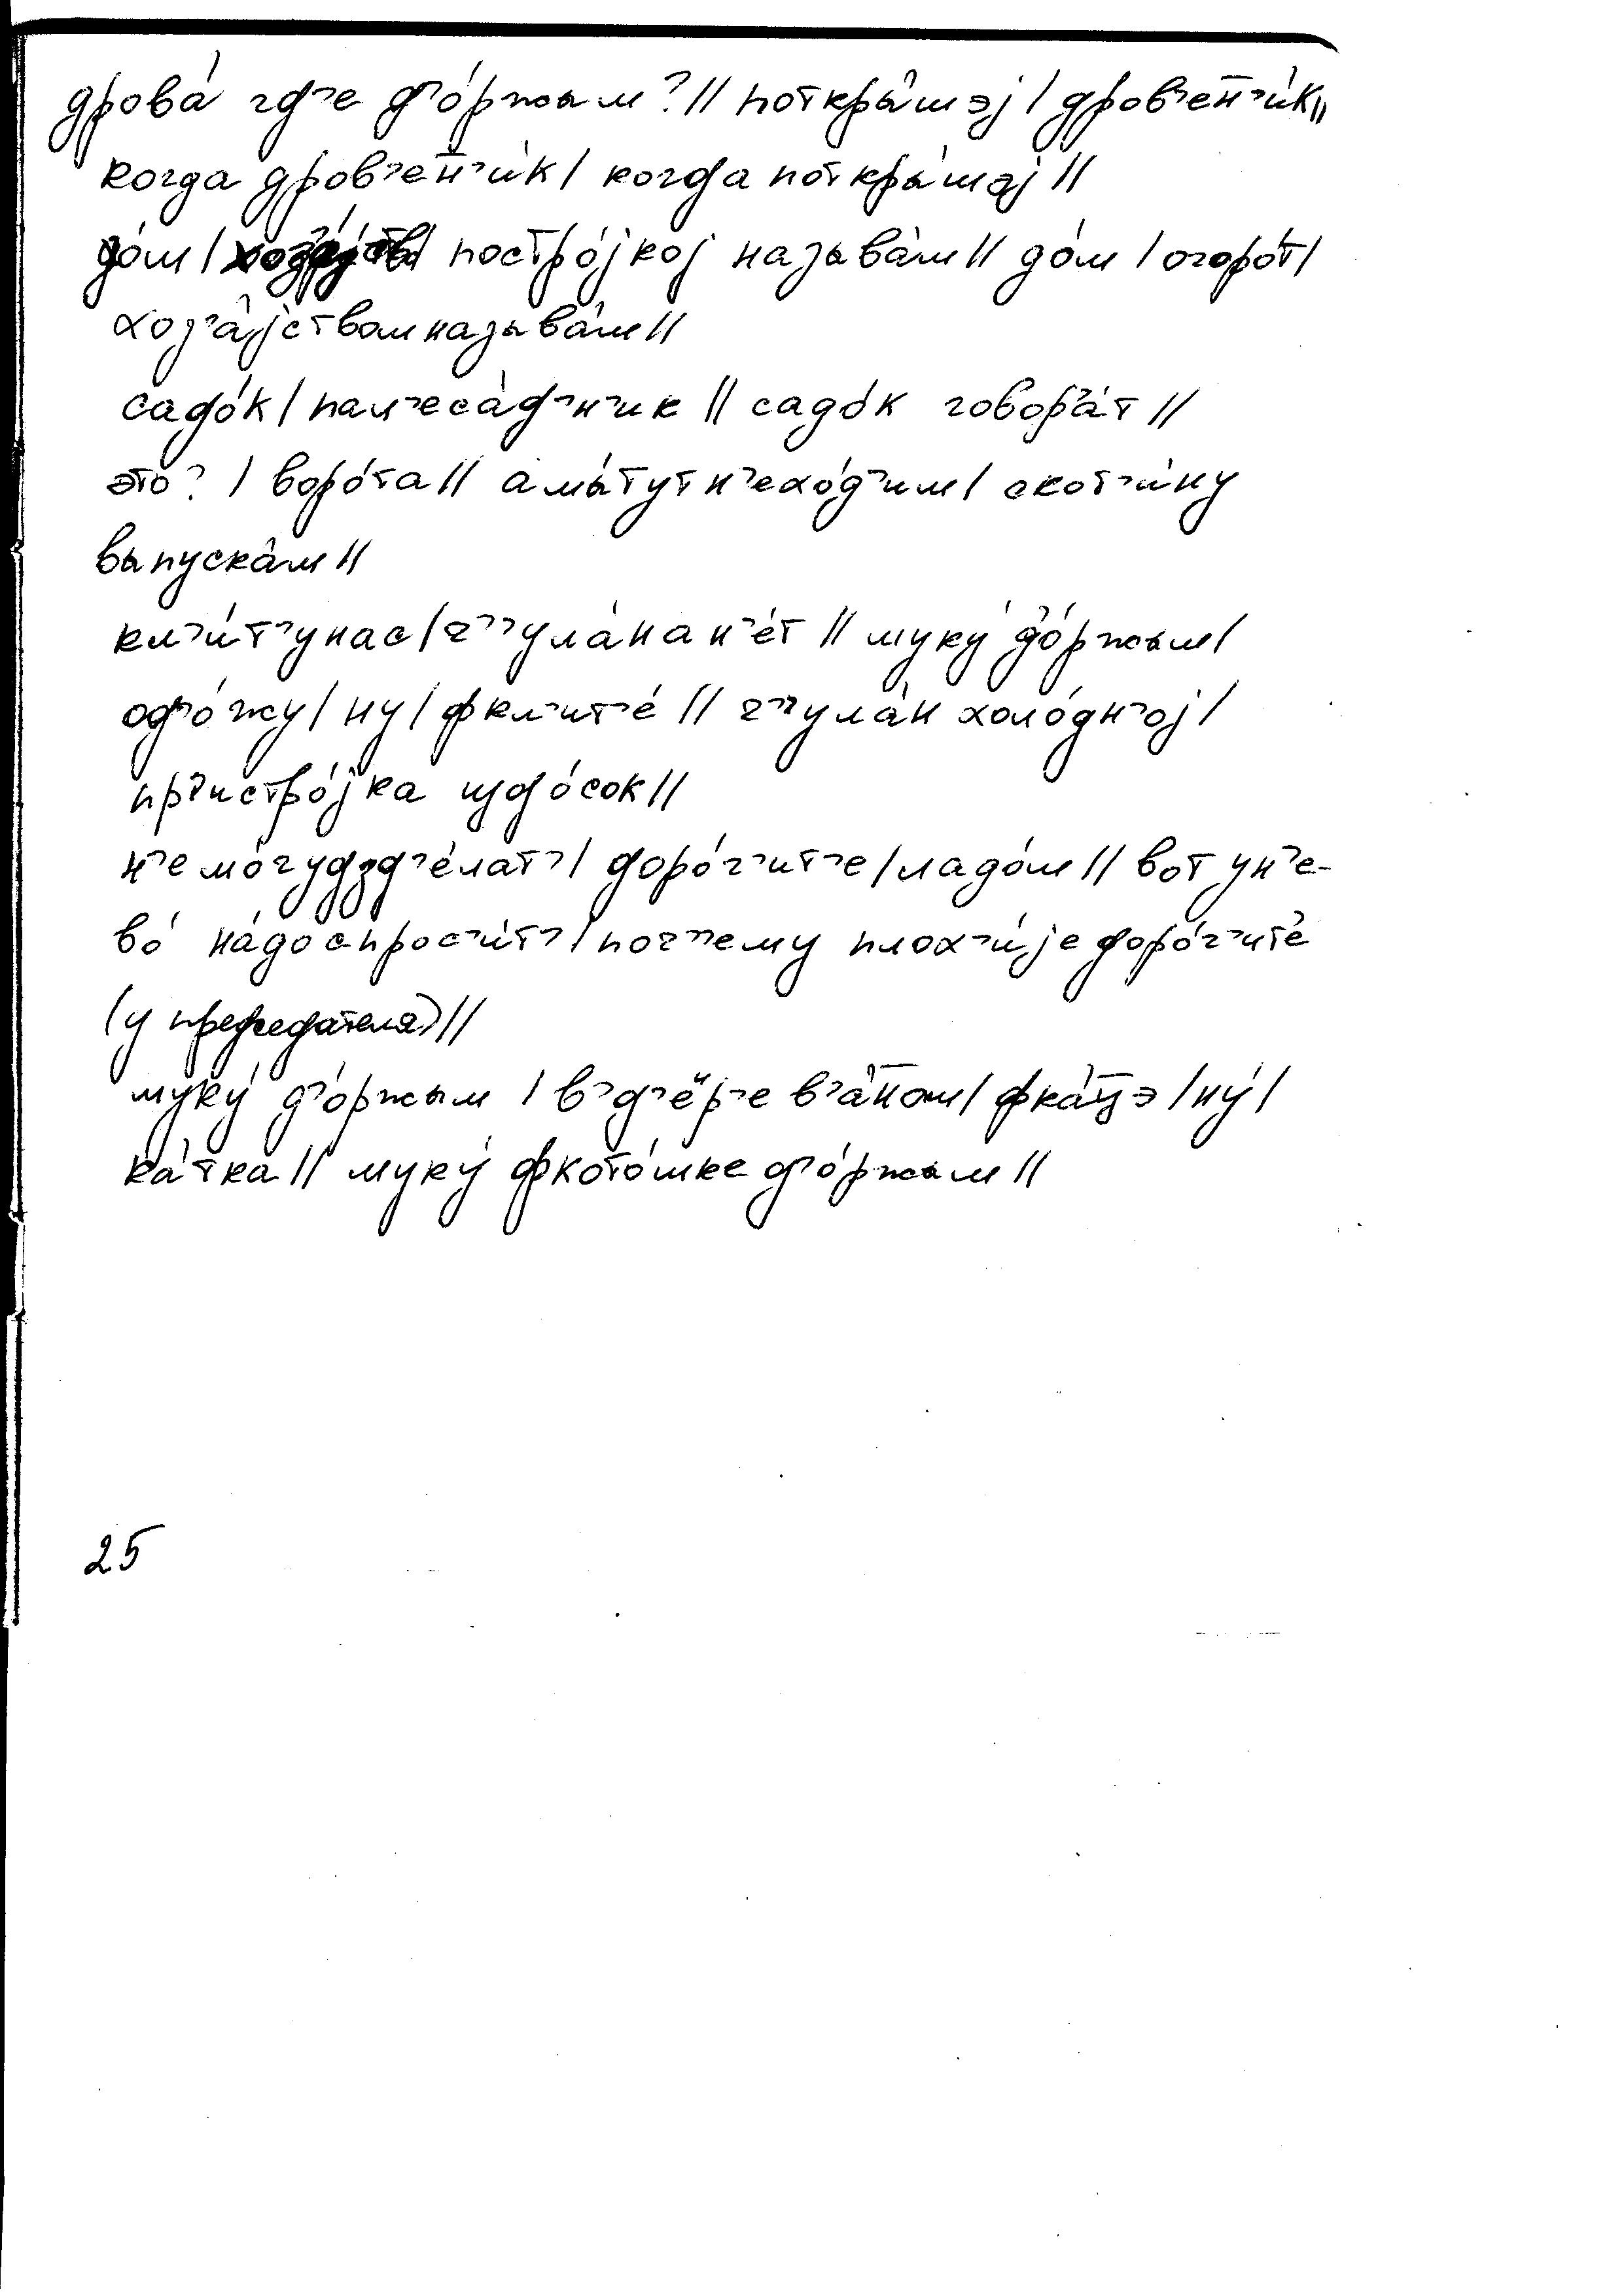 дрова́ гд’е д’о́ржым?// поткры́шэj / дров’ен̄’и́к//
когда дров’ен̄’и́к/ когда поткры́шэj //
до́м / постро́jкоj называ́м// до́м / огоро́т/
хоз’а́jствам называ́м//
садо́к / пал’еса́д’н’ик // садо́к говор’а́т //
это? / воро́та// а мы́ тут н’ехо́д’им/ скот’и́ну
выпуска́м //
кл’и́т’ у нас / ч’’ула́на н’е́т // муку́ д’о́ржым/
од’о́жу/ ну/ фкл’ит’е́ // ч’’ула́н холо́дн’оj /
пр’истро́jка издо́сок//
н’е мо́гудзд’е́лат’/ доро́г’ит’е /ладо́м // вот у н’е-
во́ на́до спрос’и́т’/ поч’’ему плох’и́jе доро́г’ит’е
(у председателя)//
муку́ д’о́ржым / в’д’ёр’е в’а̄́ном/ фка́ц̄э /ну́/
ка́тка // муку́ фкото́мке д’о́ржым //
25